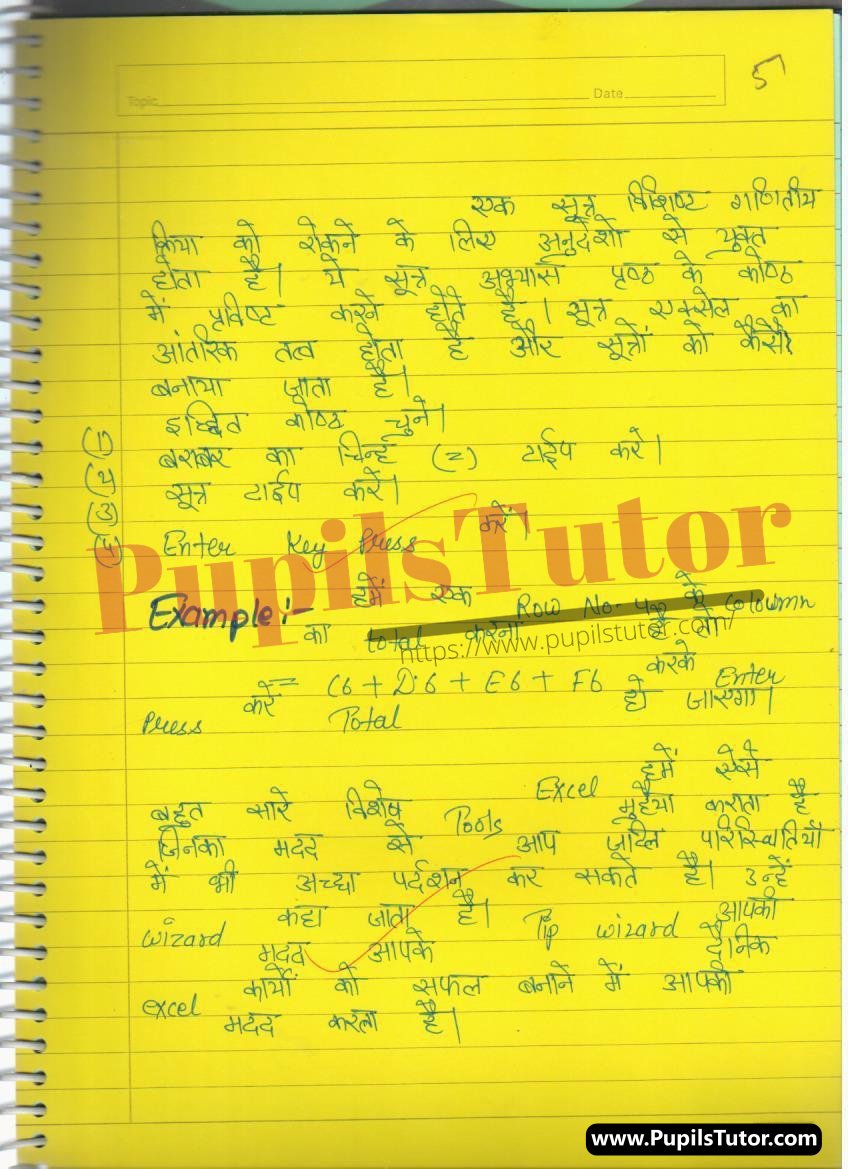 5
Topic Date
एक सूत्र विशिष्ट गणितीय
क्रिया को रोकने के लिए अनुदेशो से युक्त
होता है। ये सूत्र अभ्यास पृष्ठ के कोष्ठ
में प्रविष्ट करने होते है। सूत्र एक्सेल का
आंतरिक तत्व होता है और सूत्रों को कैसे
बनाया जाता है।
(1) इच्छित कोष्ठ चुने।
(2) बराबर का चिन्ह (=) टाईप करे।
(3) सूत्र टाईप करें।
(4) Enter Key Press करें।
PupilsTutor
Example:- हमें एक Row No- के Coloumn
का total करना है तो
https://www.pupilstutor.com/
= C6 + D6 + E6 + F6 करके Enter
Press करें Total हो जाएगा।
Excel हमें ऐसे
बहुत सारे विशेष Tools मुहैया कराता है
जिनका मदद से आप जटिल परिस्थितियों
में भी अच्छा पर्दशन कर सकते है। उन्हें
wizard कहा जाता है। Tip wizard आपकी
मदद आपके दैनिक
excel कार्यो को सफल बनाने में आपकी
मदद करता है।
www.PupilsTutor.com